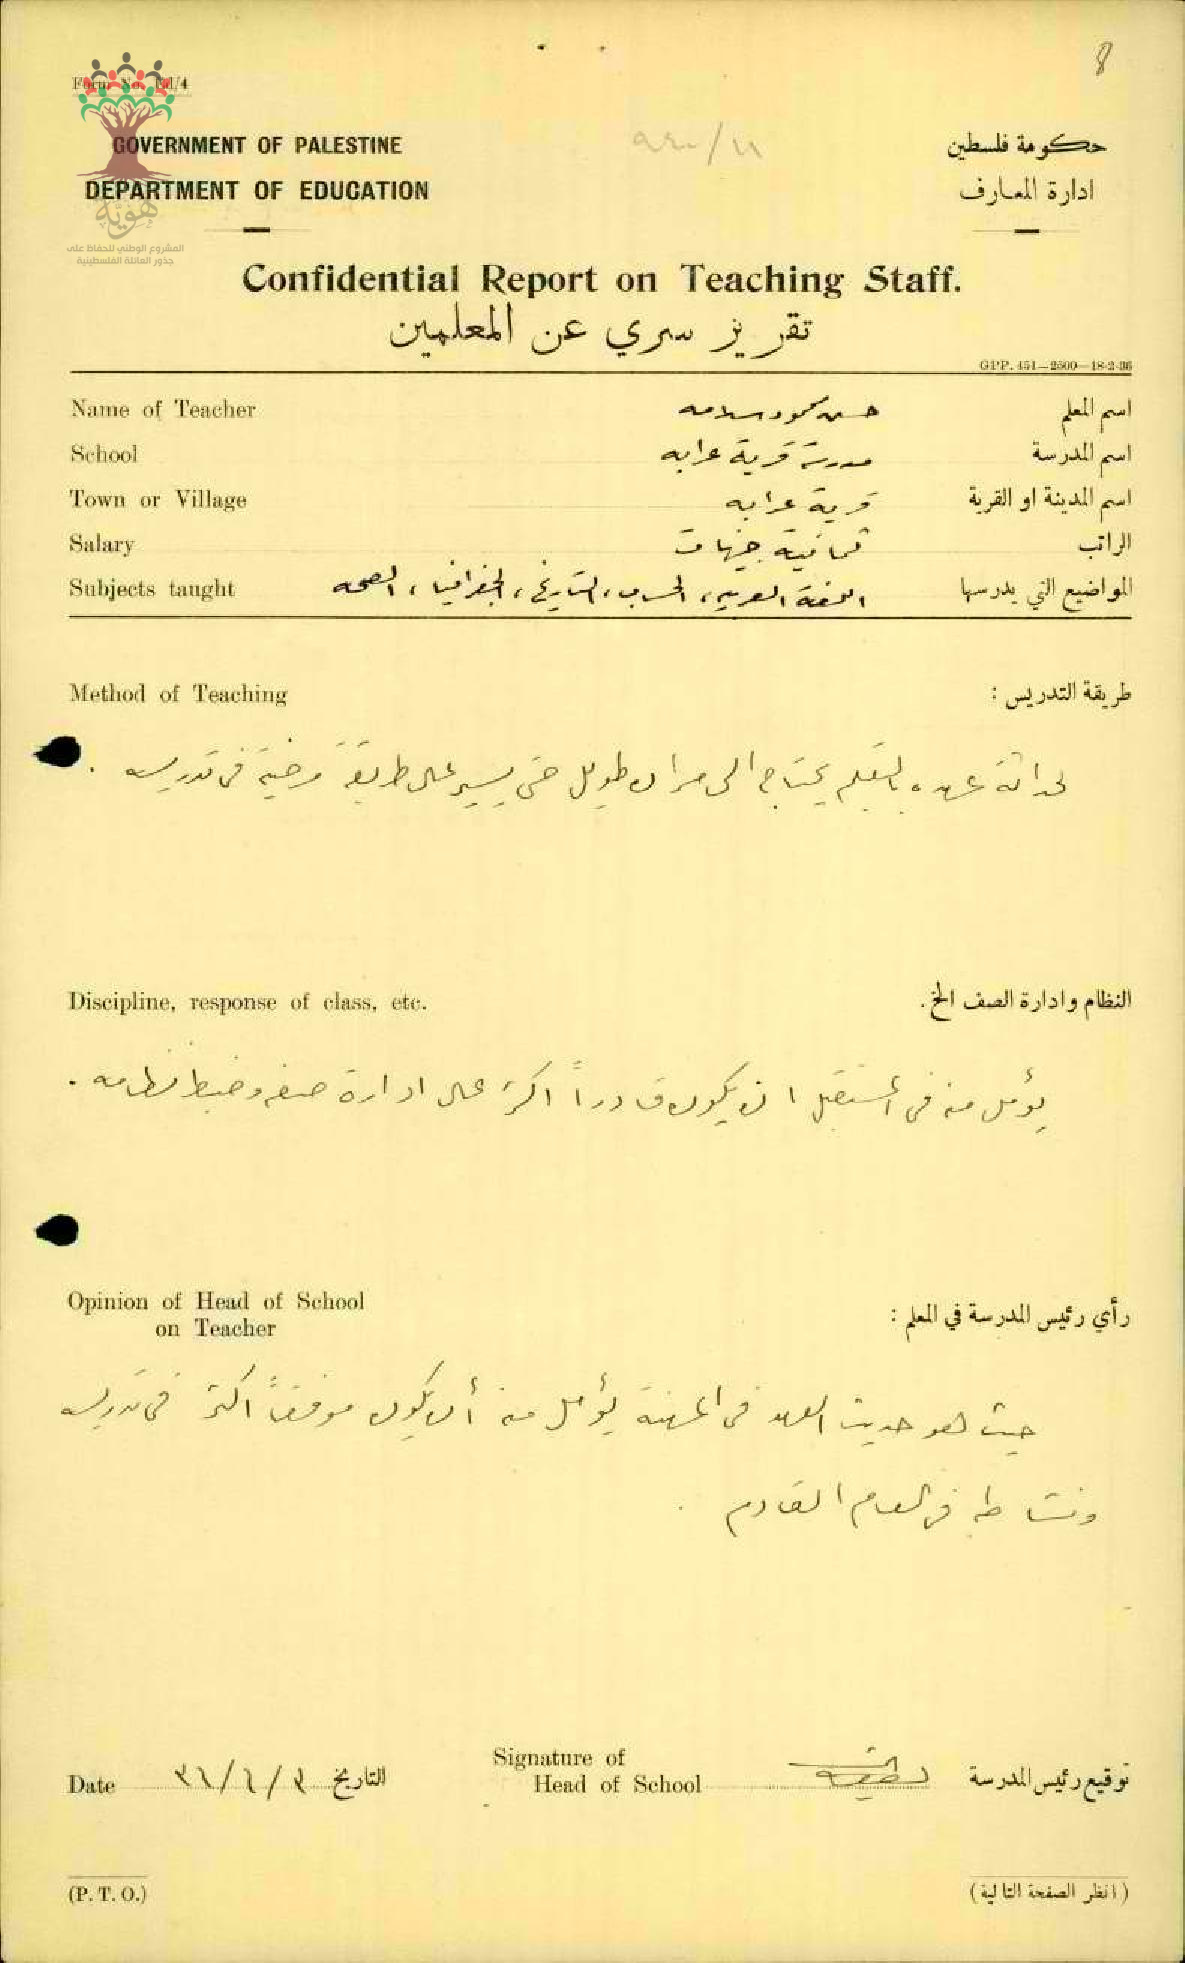 8
Form No. Ed/4
GOVERNMENT OF PALESTINE
حكومة فلسطين
DEPARTMENT OF EDUCATION
ادارة المعارف
هوية
المشروع الوطني للحفاظ على
جذور العائلة الفلسطينية
Confidential Report on Teaching Staff.
تقرير سري عن المعلمين
GPP. 451—2500—18-2-36
Name of Teacher حسن محمود سلامه اسم المعلم
School مدرسة قرية عرابه اسم المدرسة
Town or Village قرية عرابه اسم المدينة او القرية
Salary ثمانية جنيهات الراتب
Subjects taught اللغة العربيه، الحساب، التاريخ، الجغرافيا، الصحه المواضيع التي يدرسها
Method of Teaching طريقة التدريس :
لحداثة عهده بالتعليم يحتاج الى مران طويل حتى يسير على طريقة مرضية في تدريسه .
Discipline, response of class, etc. النظام وادارة الصف الخ.
يؤمل منه في المستقبل ان يكون قادراً اكثر على ادارة صفه وضبط نظامه .
Opinion of Head of School
on Teacher
رأي رئيس المدرسة في المعلم :
حيث هو حديث العهد في المهنة يؤمل منه أن يكون موفقاً اكثر في تدريسه
ونشاطه في العام القادم .
Signature of
Head of School توقيع رئيس المدرسة
Date التاريخ
(P. T. O.) (انظر الصفحة التالية)